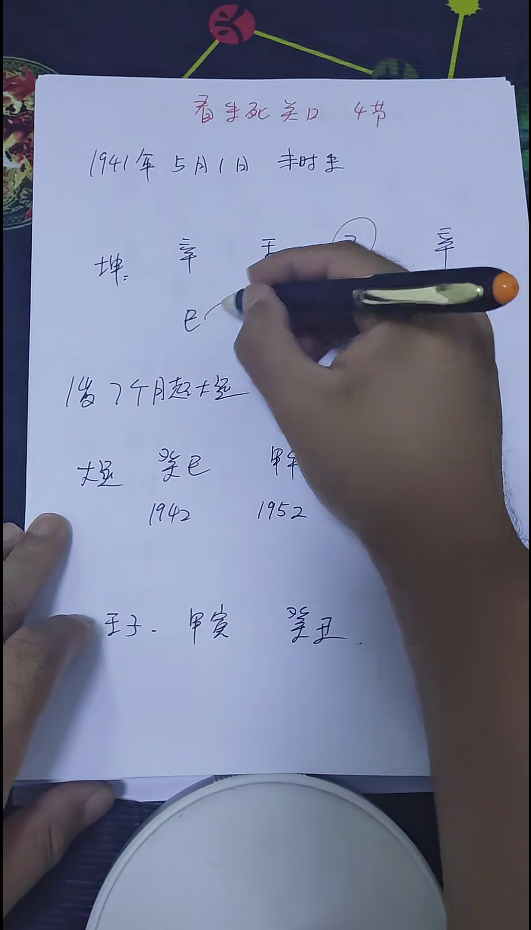 看生死关口 4节
1941年 5月1日 未时生
坤: 辛 壬 辛
巳
1岁7个月起大运
大运 癸巳 甲午
1942 1952
壬子. 甲寅 癸丑.